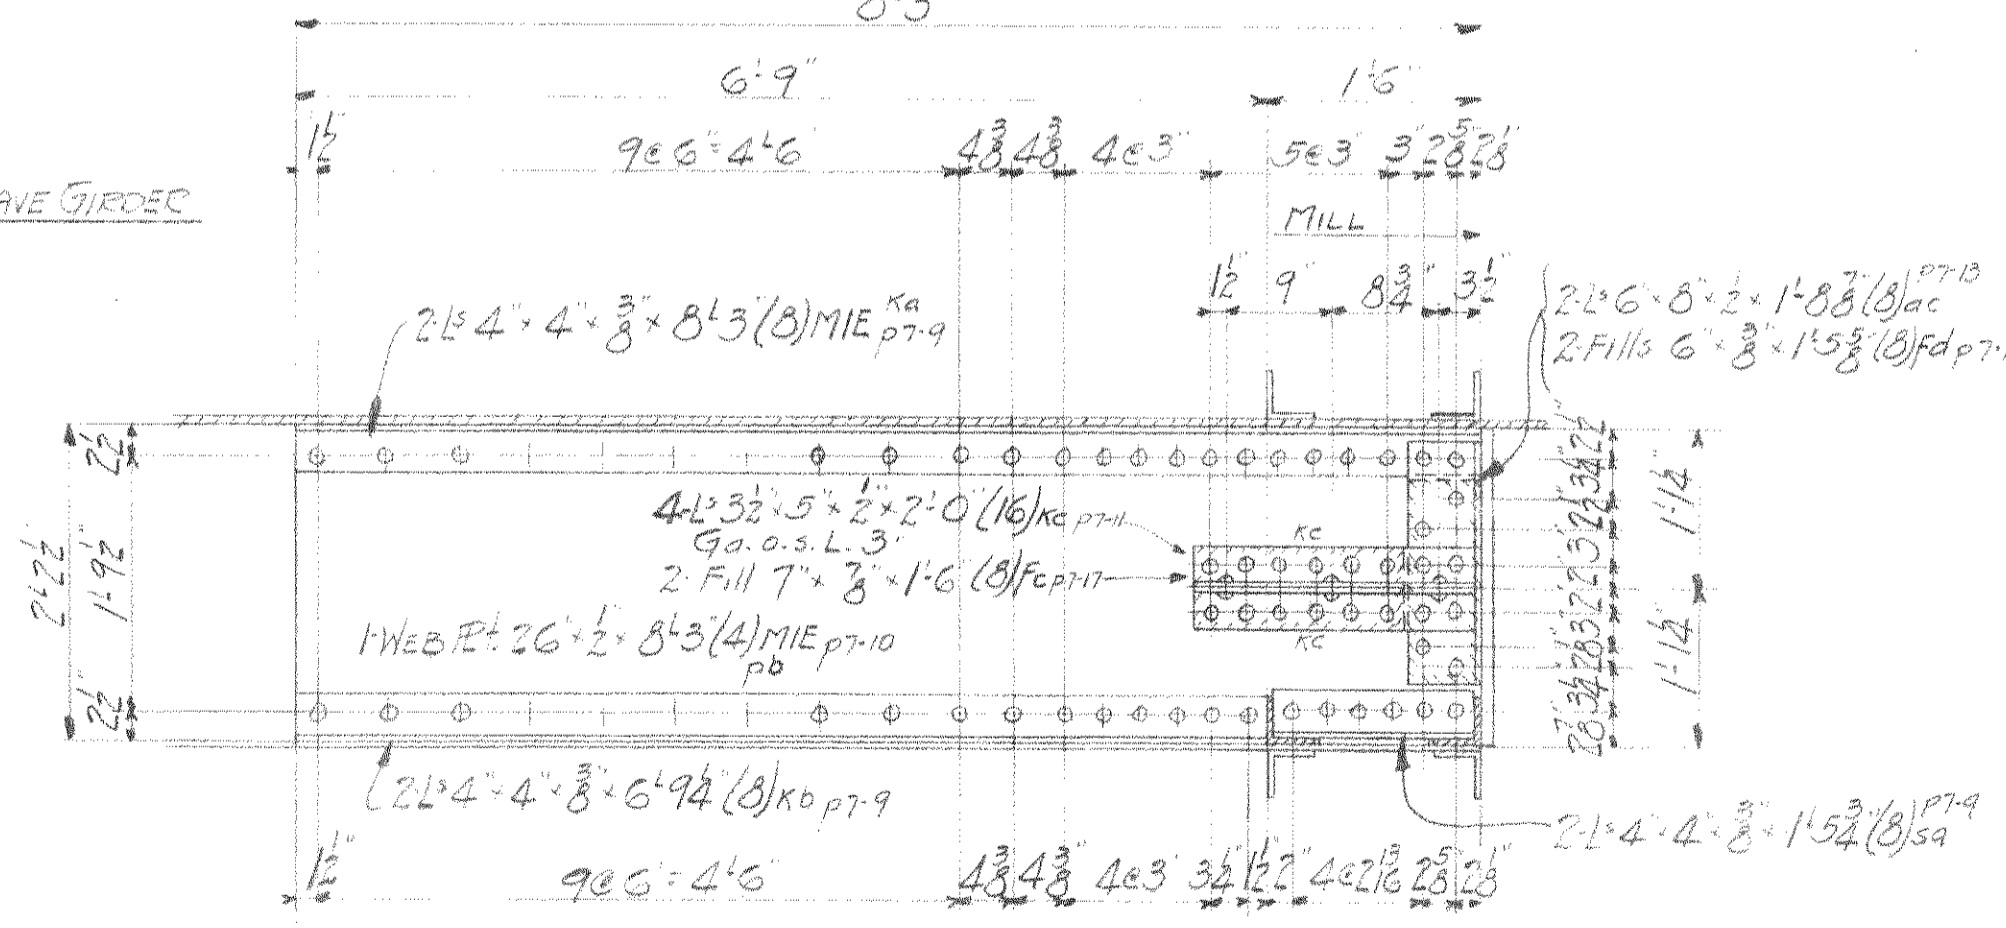 8'-3"
6'-9"
1'-6"
1½"
9@6"=4'-6
4⅜" 4⅜" 4@3" 5@3" 3" 2⅝" 2⅛"
AVE GIRDER
MILL
1½" 9" 8¾" 3½"
2-Ls 4" × 4" × ⅜" × 8'-3"(8) MIE Ka p7-9
2-Ls 6" × 8" × ½ × 1'-8⅞"(8) ac p7-13
2-Fills 6" × ⅜" × 1'-5⅝"(8) Fd p7-1
2½"
1'-9½"
2½"
2'-2½"
4-Ls 3½" × 5" × ½" × 2'-0"(16) Kc p7-11
Ga. o.s.L. 3"
2-Fill 7" × ⅞" × 1'-6"(8) Fc p7-17
KC
KC
1-WEB Pl. 26" × ½" × 8'-3"(4) MIE p7-10
pb
1'-1¼"
1'-1¼"
2-Ls 4" × 4" × ⅜" × 6'-9¼"(8) Kb p7-9
2-Ls 4" × 4" × ⅜" × 1'-5¾"(8) sa p7-9
1½"
9@6"=4'-6"
4⅜" 4⅜" 4@3" 3¼" 1½" 2" 4@2 13/16 2⅝" 2⅛"